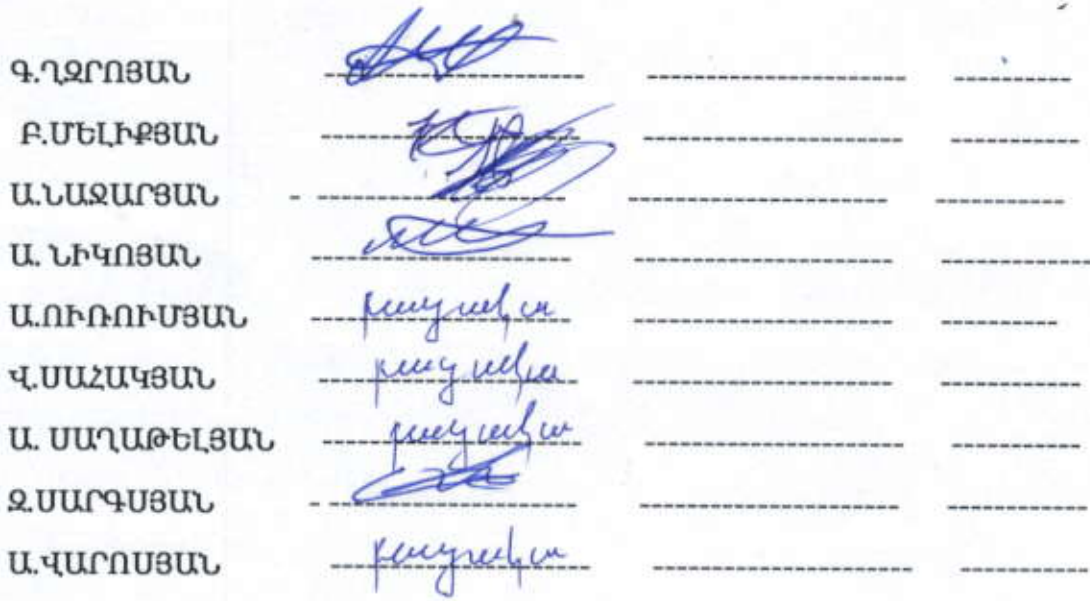 Գ.ՂՋՐՈՅԱՆ
Բ.ՄԵԼԻՔՅԱՆ
Ա.ՆԱՋԱՐՅԱՆ
Ա. ՆԻԿՈՅԱՆ
Ա.ՈՒՌՈՒՄՅԱՆ բացակա
Վ.ՍԱՀԱԿՅԱՆ բացակա
Ա. ՍԱՂԱԹԵԼՅԱՆ բացակա
Ջ.ՍԱՐԳՍՅԱՆ
Ա.ՎԱՐՈՍՅԱՆ բացակա